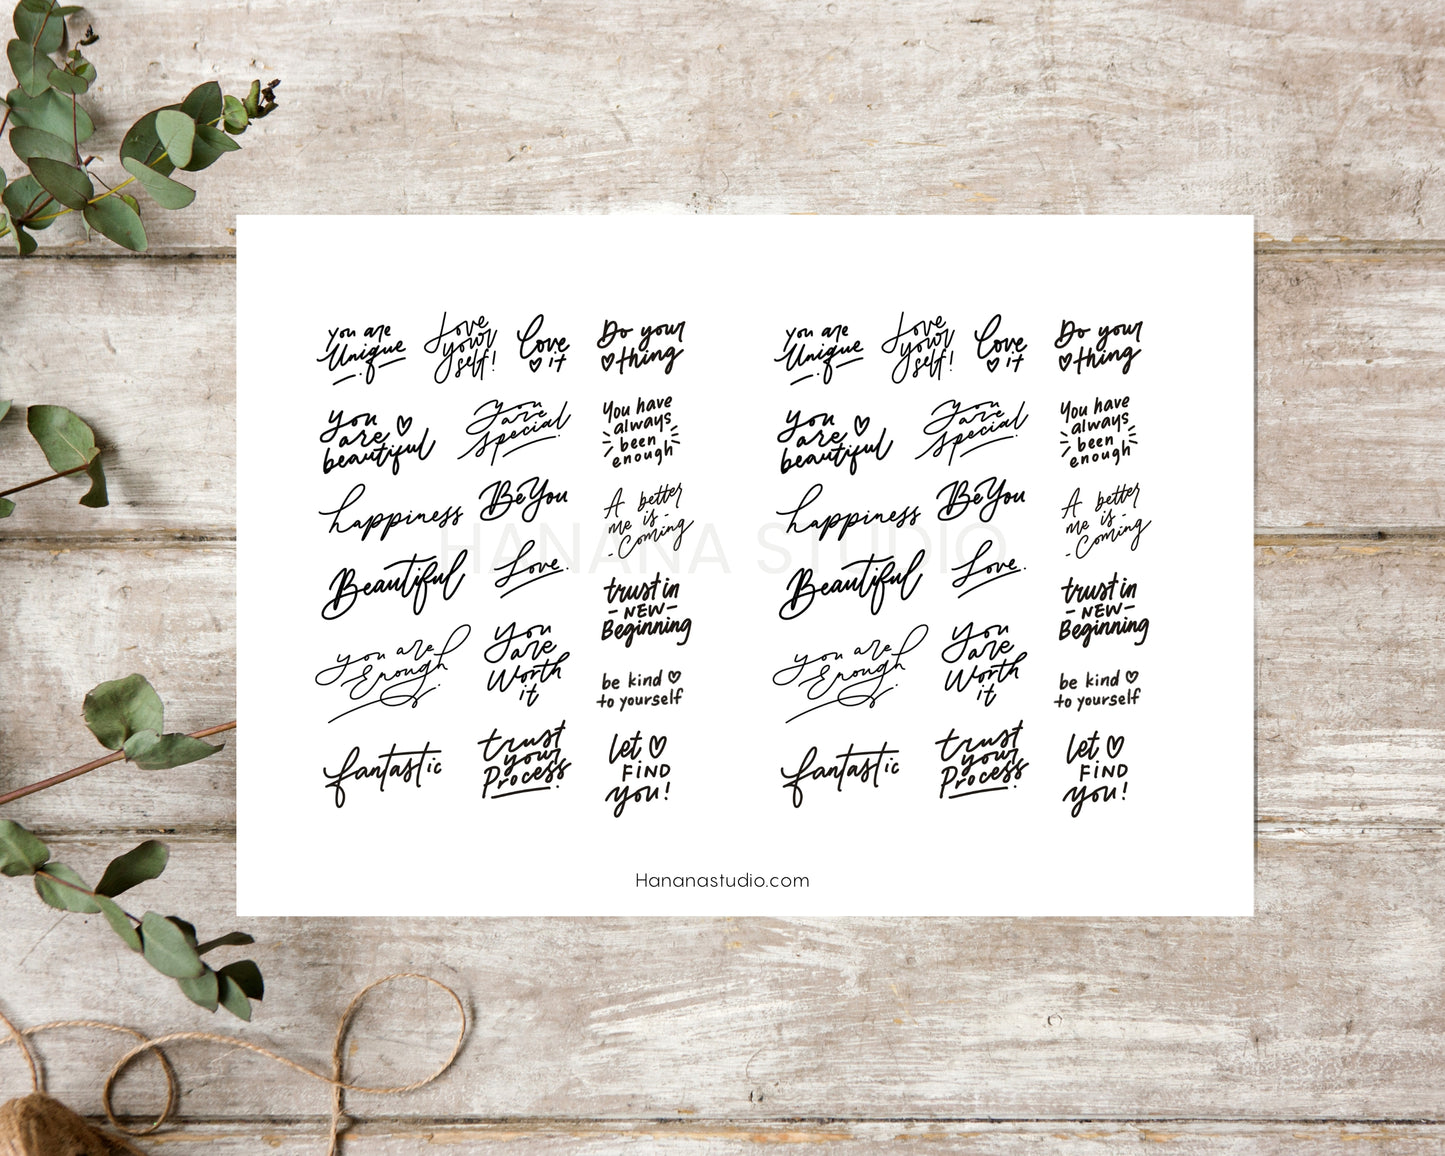 you are
Unique
Love
your
self!
Love
it
Do your
thing
you
are
beautiful
you
are
special
You have
always
been
enough
happiness
Be You
A better
me is
- Coming
Beautiful
Love.
trust in
- NEW -
Beginning
you are
Enough.
you
are
Worth
it
be kind
to yourself
fantastic
trust
your
Process.
let
FIND
you!
you are
Unique
Love
your
self!
Love
it
Do your
thing
you
are
beautiful
you
are
special
You have
always
been
enough
happiness
Be You
A better
me is
- Coming
Beautiful
Love.
trust in
- NEW -
Beginning
you are
Enough.
you
are
Worth
it
be kind
to yourself
fantastic
trust
your
Process.
let
FIND
you!
HANANA STUDIO
Hananastudio.com